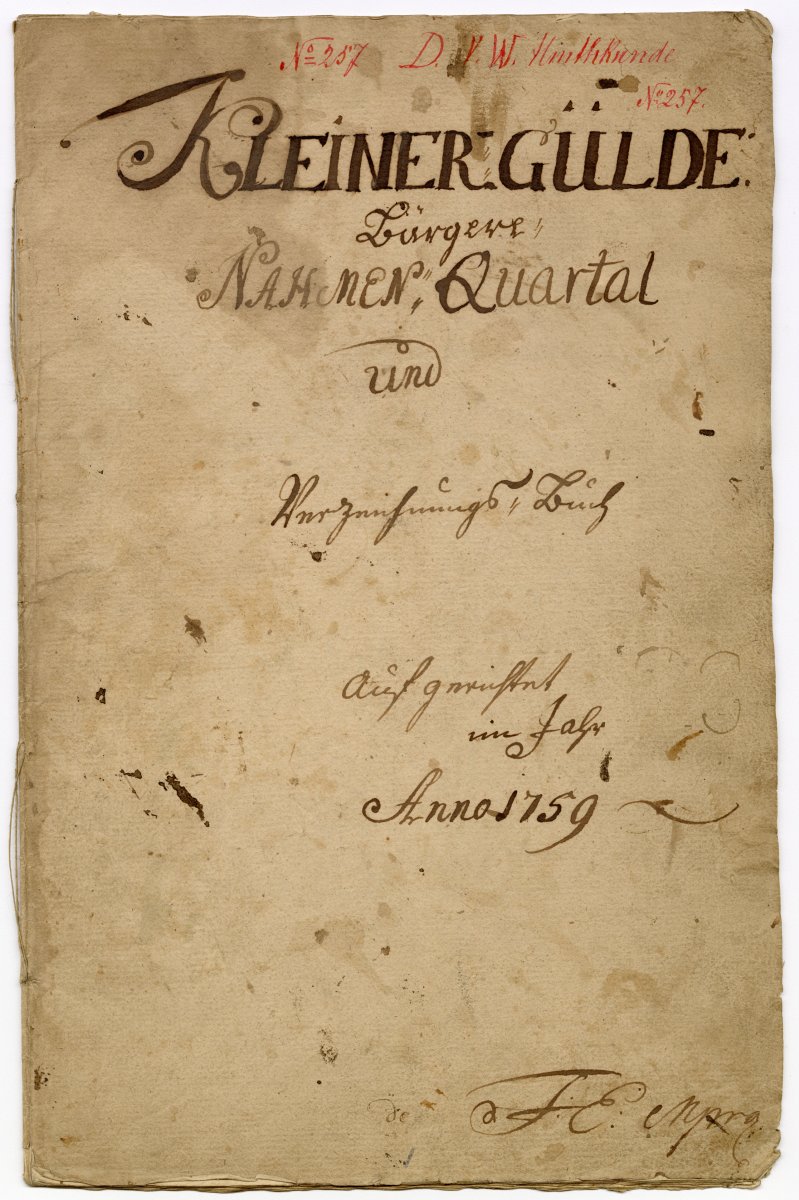 No 257 D. V. W.
No 257.
KLEINER-GÜLDE:
Bürgere"
NAHMEN," Quartal
und
Verzeichnungs" Buch
Aufgerichtet
im Jahr
Anno 1759
de F. E.